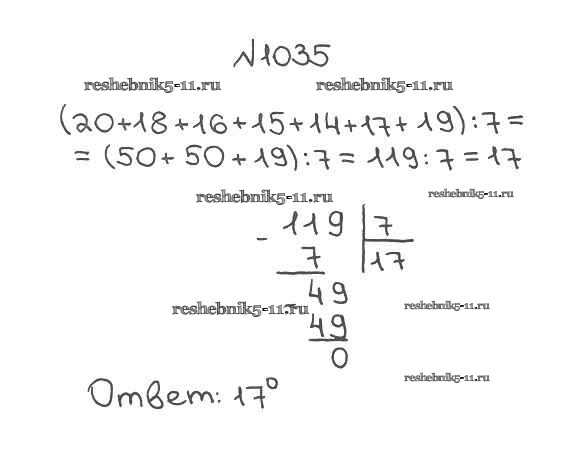 №1035
reshebnik5-11.ru reshebnik5-11.ru
(20+18+16+15+14+17+19):7=
=(50+50+19):7=119:7=17
reshebnik5-11.ru reshebnik5-11.ru
- 119 | 7
7 | 17
- 49
reshebnik5-11.ru reshebnik5-11.ru
49
0
reshebnik5-11.ru
Ответ: 17°